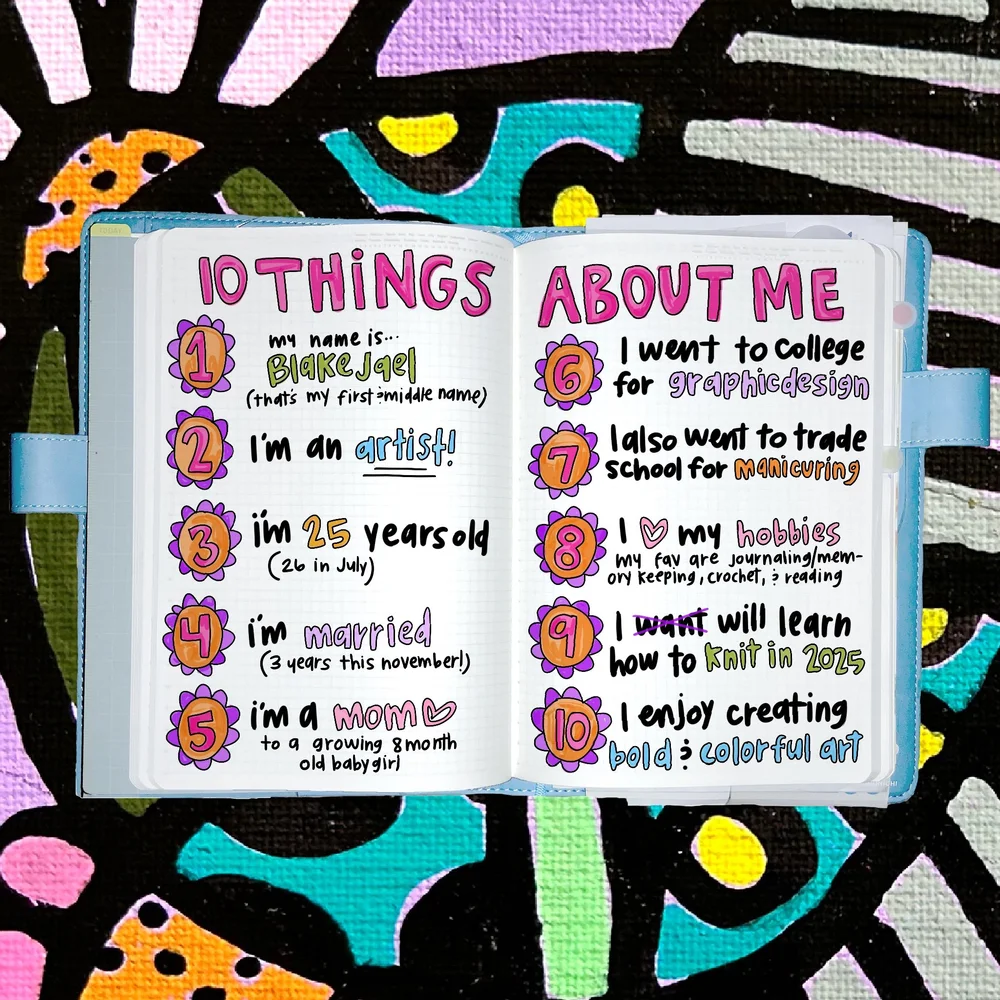 TODAY
10 THINGS
1
my name is...
Blake Jael
(that's my first & middle name)
2
I'm an artist!
3
i'm 25 years old
(26 in July)
4
i'm married
(3 years this november!)
5
i'm a mom
to a growing 8 month
old baby girl
ABOUT ME
6
I went to college
for graphic design
7
I also went to trade
school for manicuring
8
I ♡ my hobbies
my fav are journaling/mem-
ory keeping, crochet, & reading
9
I want will learn
how to knit in 2025
10
I enjoy creating
bold & colorful art